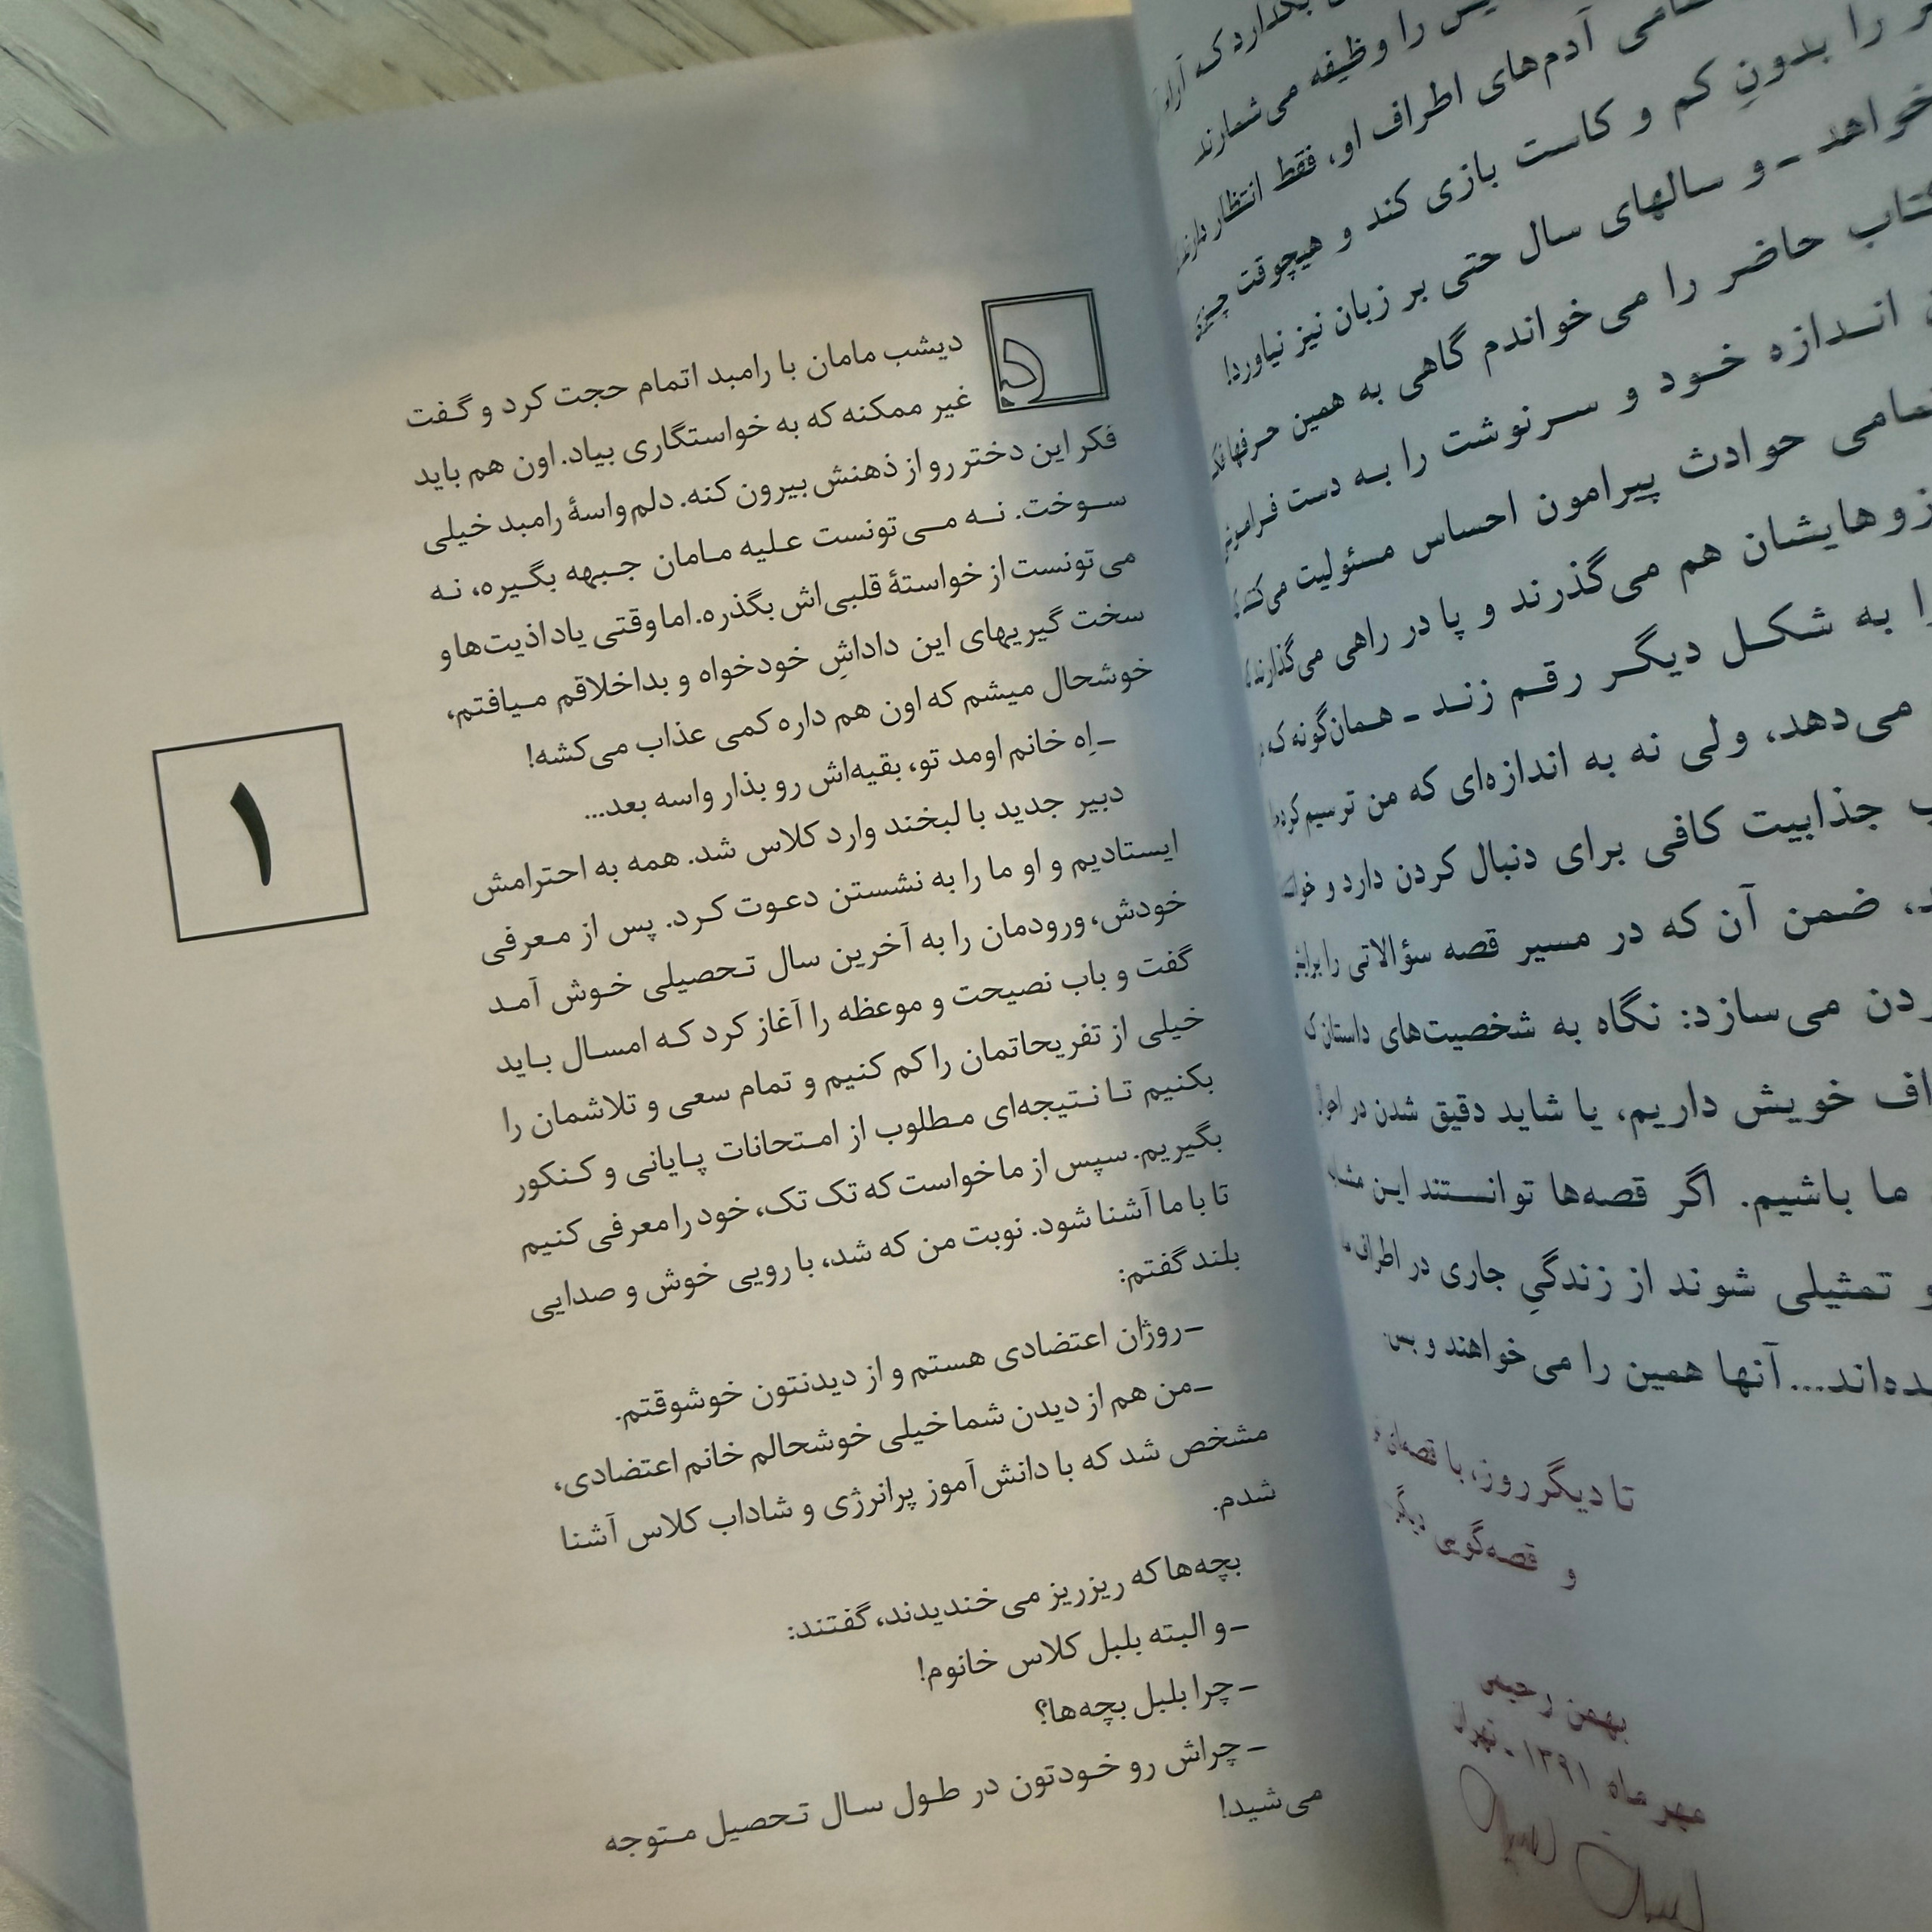 را وظیفه می‌شمارند
آدم‌های اطراف او، فقط انتظار دارند
را بدونِ کم و کاست بازی کند و هیچوقت
خواهد ـ و سالهای سال حتی بر زبان نیز نیاورد!
حاضر را می‌خواندم گاهی به همین حرفها
اندازه خود و سرنوشت را به دست
حوادث پیرامون احساس مسئولیت
هم می‌گذرند و پا در راهی می‌گذارند
به شکل دیگر رقم زند ـ همان‌گونه که
می‌دهد، ولی نه به اندازه‌ای که من ترسیم
جذابیت کافی برای دنبال کردن دارد و
ضمن آن که در مسیر قصه سؤالاتی را
می‌سازد: نگاه به شخصیت‌های داستان
خویش داریم، یا شاید دقیق شدن در
ما باشیم. اگر قصه‌ها توانستند این
و تمثیلی شوند از زندگیِ جاری در اطراف
آنها همین را می‌خواهند و بس
تا دیگر روز، با
و قصه‌گوی
بهمن رحیمی
مهر ماه ۱۳۹۱ ـ تهران
۱
د
دیشب مامان با رامبد اتمام حجت کرد و گفت
غیر ممکنه که به خواستگاری بیاد. اون هم باید
فکر این دختر رو از ذهنش بیرون کنه. دلم واسهٔ رامبد خیلی
سوخت. نه می‌تونست علیه مامان جبهه بگیره، نه
می‌تونست از خواستهٔ قلبی‌اش بگذره. اما وقتی یاد اذیت‌ها و
سخت گیریهای این داداشِ خودخواه و بداخلاقم میافتم،
خوشحال میشم که اون هم داره کمی عذاب می‌کشه!
ـ اِه خانم اومد تو، بقیه‌اش رو بذار واسه بعد...
دبیر جدید با لبخند وارد کلاس شد. همه به احترامش
ایستادیم و او ما را به نشستن دعوت کرد. پس از معرفی
خودش، ورودمان را به آخرین سال تحصیلی خوش آمد
گفت و باب نصیحت و موعظه را آغاز کرد که امسال باید
خیلی از تفریحاتمان را کم کنیم و تمام سعی و تلاشمان را
بکنیم تا نتیجه‌ای مطلوب از امتحانات پایانی و کنکور
بگیریم. سپس از ما خواست که تک تک، خود را معرفی کنیم
تا با ما آشنا شود. نوبت من که شد، با رویی خوش و صدایی
بلند گفتم:
ـ روژان اعتضادی هستم و از دیدنتون خوشوقتم.
ـ من هم از دیدن شما خیلی خوشحالم خانم اعتضادی،
مشخص شد که با دانش‌آموز پرانرژی و شاداب کلاس آشنا
شدم.
بچه‌ها که ریزریز می‌خندیدند، گفتند:
ـ و البته بلبل کلاس خانوم!
ـ چرا بلبل بچه‌ها؟
ـ چراش رو خودتون در طول سال تحصیل متوجه
می‌شید!